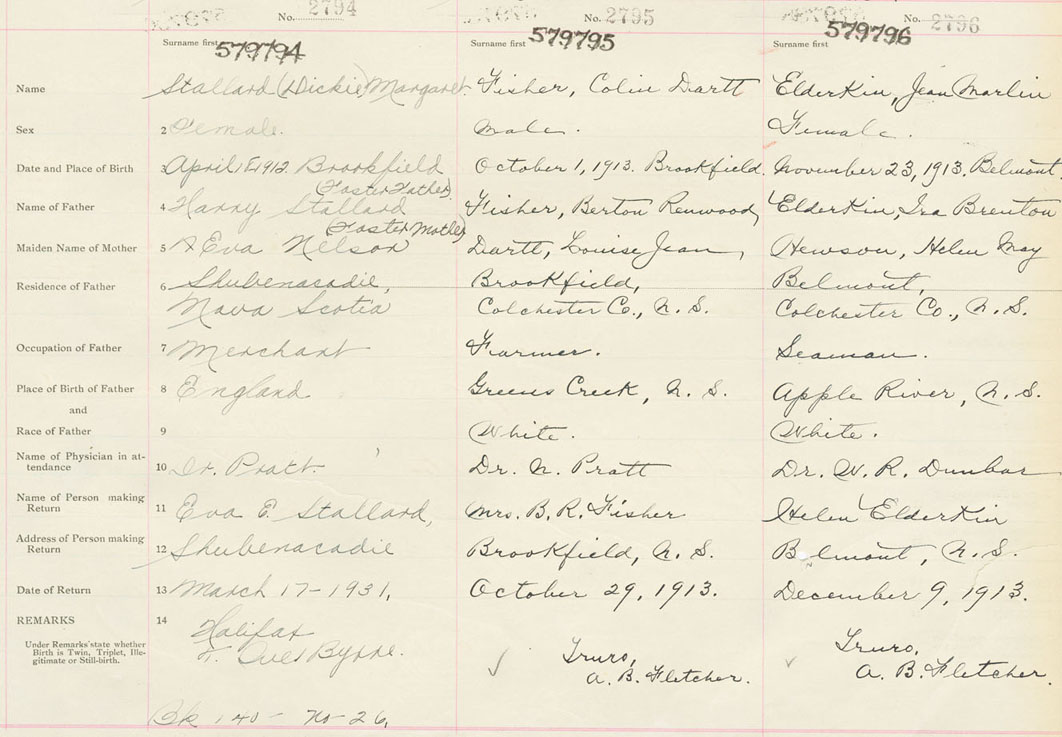 No. 2794 No. 2795 No. 2796
Surname first 579794 Surname first 579795 Surname first 579796
Name Stallard (Dickie) Margaret Fisher, Colin Dartt Elderkin, Jean Marlin
Sex 2 Female. Male. Female.
Date and Place of Birth 3 April 1912 Brookfield October 1, 1913. Brookfield. November 23, 1913. Belmont.
(Foster Father)
Name of Father 4 Harry Stallard Fisher, Berton Renwood, Elderkin, Ira Brenton
(Foster Mother)
Maiden Name of Mother 5 x Eva Nelson Dartt, Louise Jean, Hewson, Helen May
Residence of Father 6 Shubenacadie, Brookfield, Belmont,
Nova Scotia Colchester Co., N. S. Colchester Co., N. S.
Occupation of Father 7 Merchant Farmer. Seaman.
Place of Birth of Father 8 England Greens Creek, N. S. Apple River, N. S.
and
Race of Father 9 White. White.
Name of Physician in at-
tendance 10 Dr. Pratt. Dr. N. Pratt Dr. W. R. Dunbar
Name of Person making
Return 11 Eva E. Stallard, Mrs. B. R. Fisher Helen Elderkin
Address of Person making
Return 12 Shubenacadie Brookfield, N. S. Belmont, N. S.
Date of Return 13 March 17-1931, October 29, 1913. December 9, 1913.
REMARKS 14 Halifax
Under Remarks state whether
Birth is Twin, Triplet, Ille-
gitimate or Still-birth.
Byrne. Truro, Truro,
A. B. Fletcher. A. B. Fletcher.
Bk 140 - No - 26,